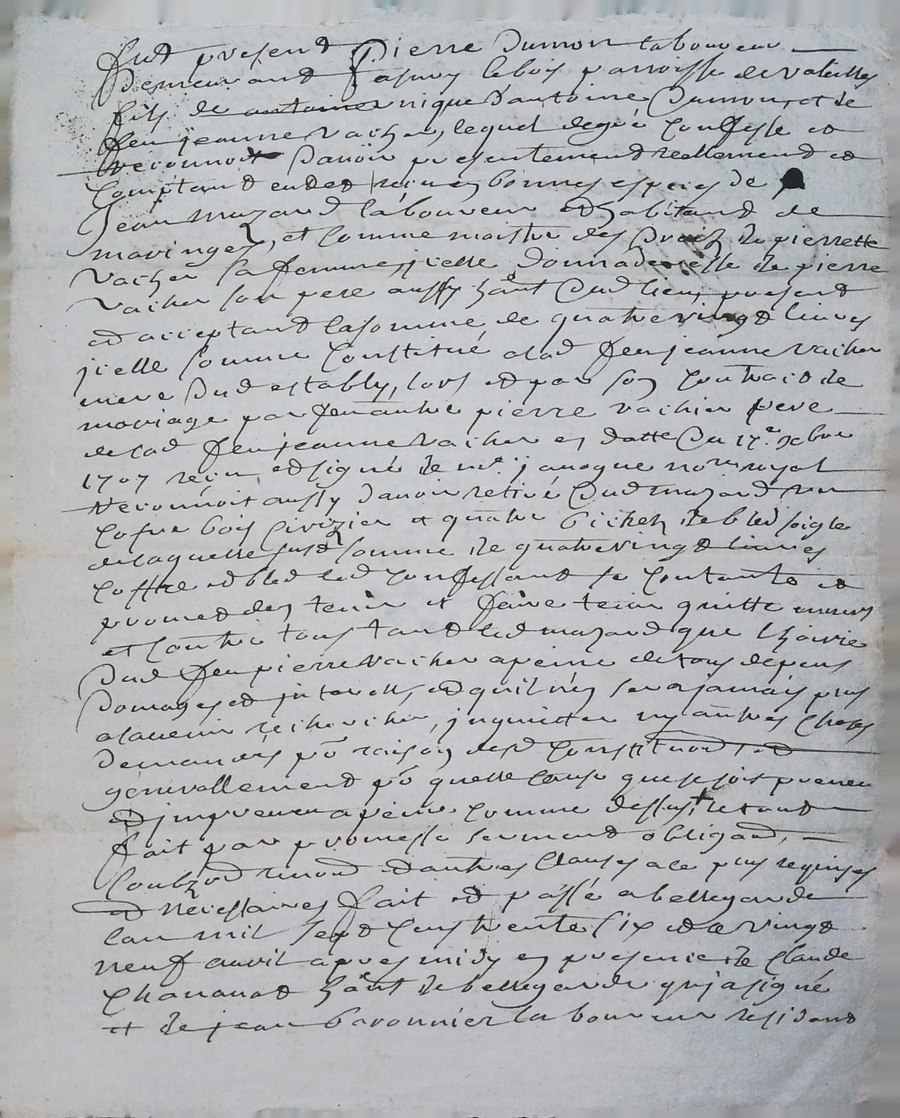 fut present Pierre Dumon laboureur
Demeurand a Jasnes le bois parroisse de valeilles
fils de antoine unique d'antoine Dumon, et de
feu jeanne vacher, lequel de gré confesse et
reconnoit D'avoir presentement reellement et
comptand eu et receu en bonnes especes de
Jean mazard laboureur et habitand de
maringes, et comme maistre des droits de pierrette
vacher sa femme, jcelle donnataire de pierre
vacher son pere aussy hānt dud lieu, present
et acceptand la somme de quatre vingt livres
jcelle somme constitué a lad feu jeanne vacher
mere dud estably, lors et par son contract de
mariage par feu autre pierre vachier pere
de lad feu jeanne vacher en datte du 17.e xbre
1707 receu et signé de me. janoque nore. royal
Reconnoit aussy d'avoir retiré dud mazard un
cofre bois cerizier et quatre bichez de bled soigle
de laquelle susd somme de quatre vingt livres
coffre et bled led confessand se contante et
promet den tenir et faire tenir quitte envers
et contre tous tand led mazard que l'hoirie
dud feu pierre vacher a peine de tous depens
Domages et jnterests et quil n'en sera jamais plus
a lavenir recherché, jnquietter ny autres choses
demander pr raison desd constitutions et
generallement pr quelle cause que se soit preveu
et jmpreveu a peine comme dessus + le tout
fait par promesse serment obligaōn,
soubzōn renōn et autres clauses a ce plus requises
et Nécessaires fait et passé a bellegarde
lan mil sept cens trente six et le vingt
neuf avril apres midy en presence de Claude
Chavanat hānt de bellegarde qui a signé
et de jean baronnier laboureur residand